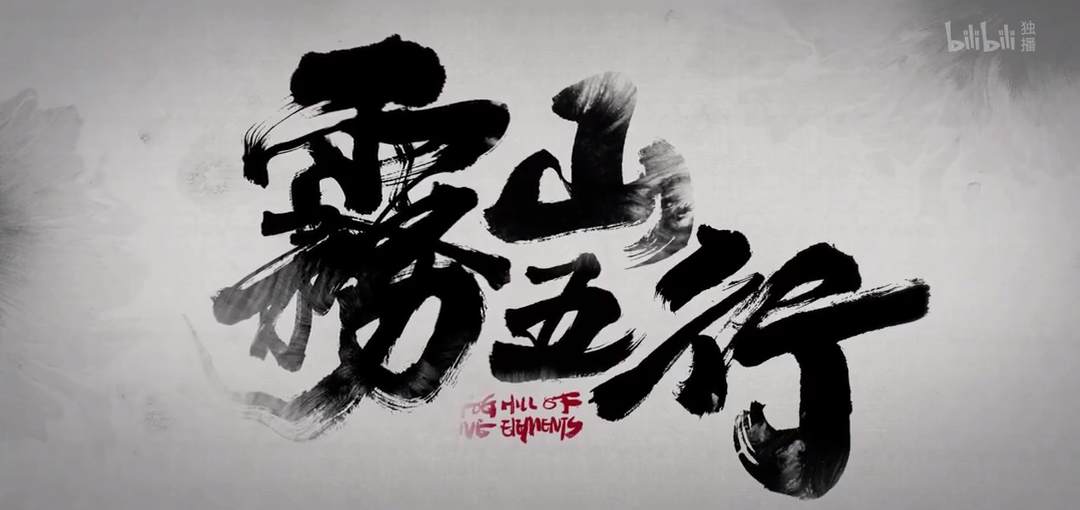 bilibili 独播
霧山五行
FOG HILL OF
IVE ELEMENTS